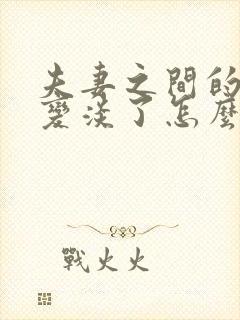 夫妻之間的
變淡了怎麼
戰火火